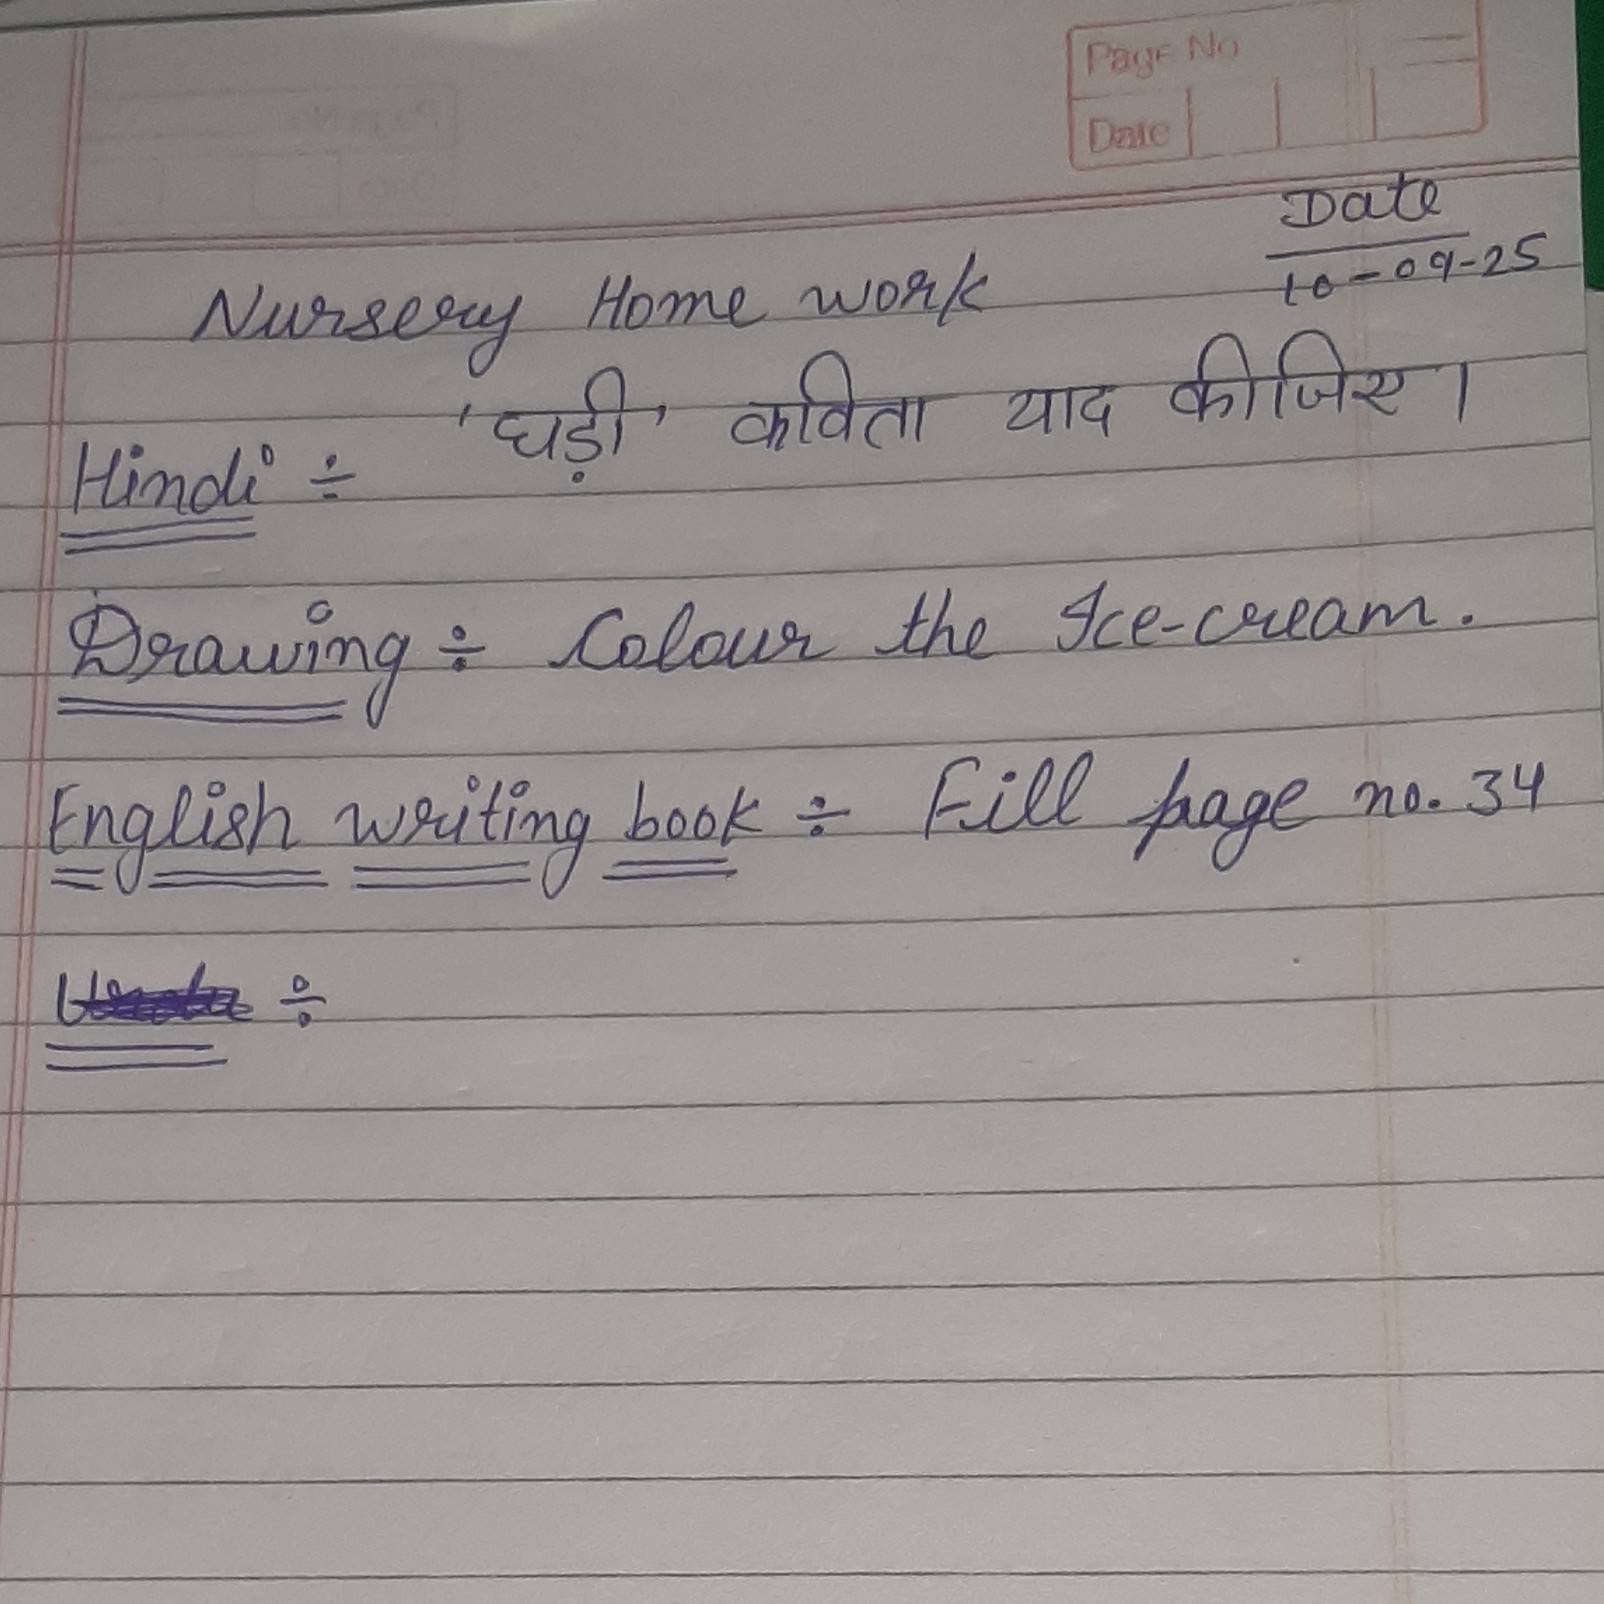 Page No
Date
Date
10-09-25
Nursery Home work
Hindi ÷ 'घड़ी' कविता याद कीजिए।
Drawing ÷ Colour the Ice-cream.
English writing book ÷ Fill page no. 34
÷